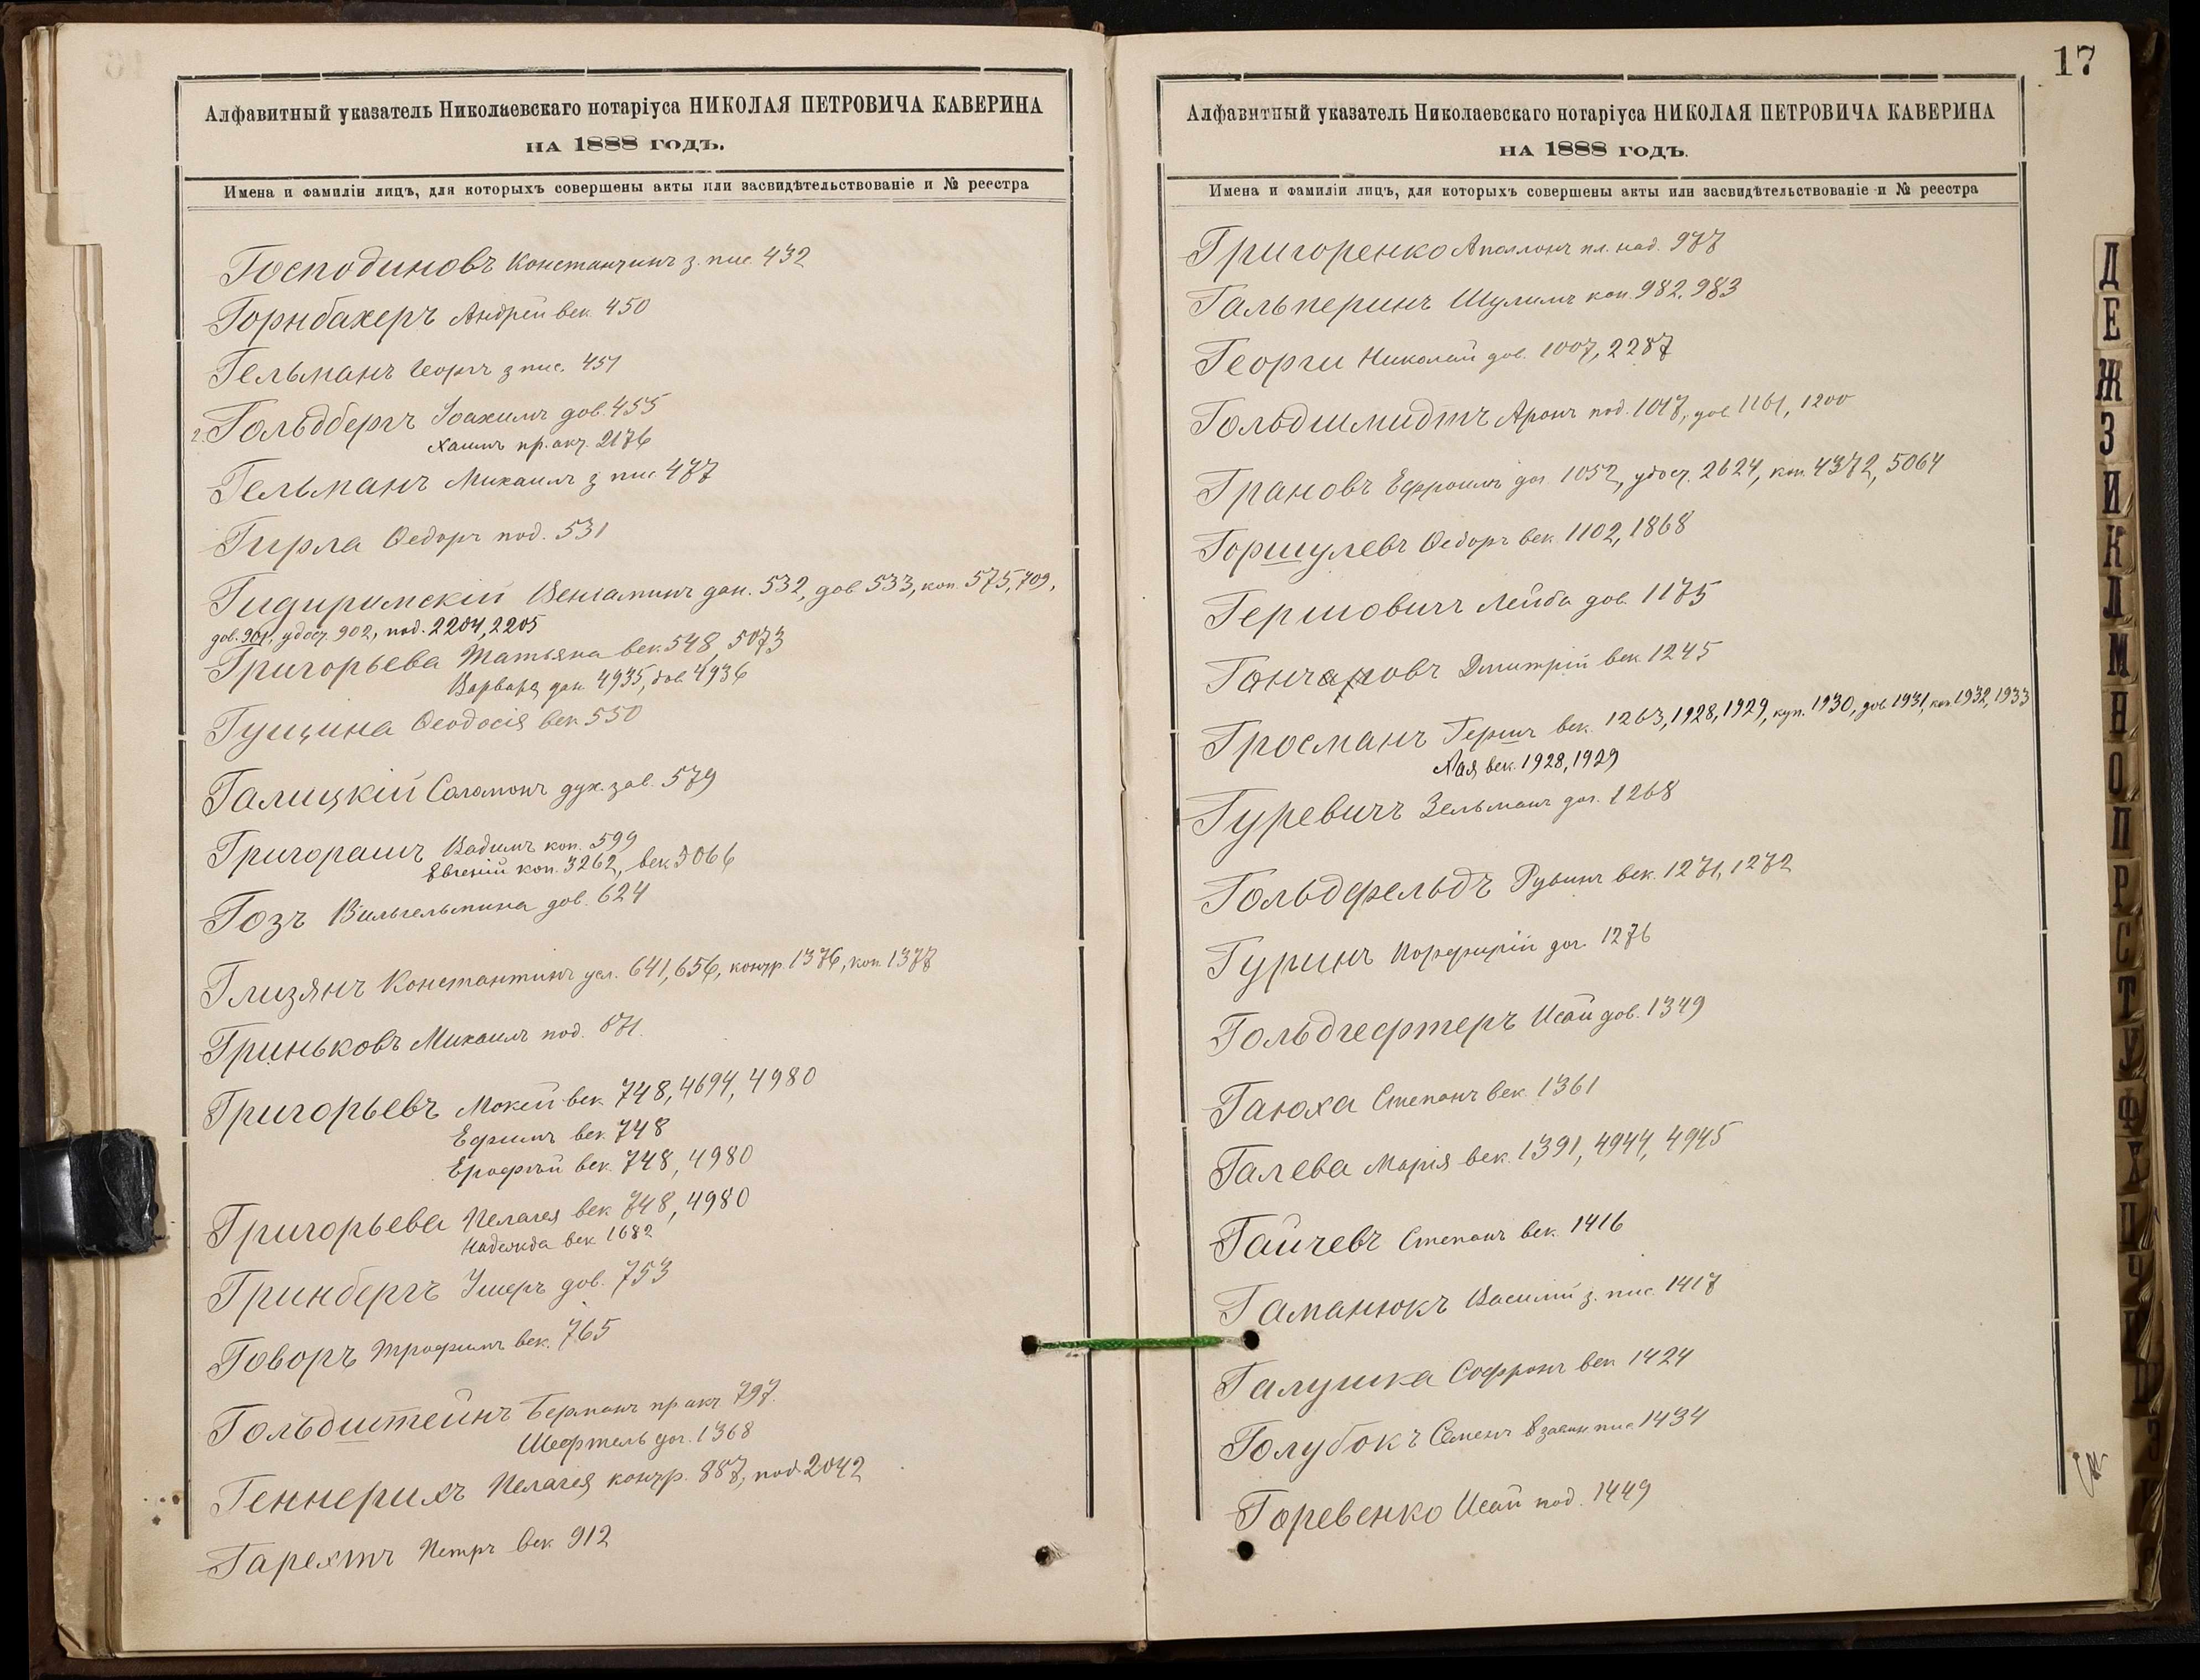 Алфавитный указатель Николаевскаго нотаріуса НИКОЛАЯ ПЕТРОВИЧА КАВЕРИНА
НА 1888 ГОДЪ.
Имена и фамиліи лицъ, для которыхъ совершены акты или засвидѣтельствованіе и № реестра
Господиновъ Константинъ з. пис. 432
Горнбахеръ Андрей век. 450
Гельманъ Георгъ з пис. 451
2. Гольдбергъ Іоахимъ дов. 455
Хаимъ пр. акт. 2176
Гельманъ Михаилъ з пис 477
Гирла Ѳедоръ под. 531
Гидиримскій Веніаминъ дан. 532, дов 533, коп. 575, 709,
дов. 901, удост. 902, под. 2204, 2205
Григорьева Татьяна век. 548, 5073
Варвара дан. 4935, дов. 4936
Гущина Ѳеодосія век 550
Галицкій Саломонъ дух. зав. 579
Григорашъ Вадимъ коп. 599
Евгеній коп. 3262, век 5066
Гозъ Вильгельмина дов. 624
Глизянъ Константинъ усл. 641, 656, контр. 1376, коп. 1377
Гриньковъ Михаилъ под. 671.
Григорьевъ Мокей век 748, 4694, 4980
Ефимъ век. 748
Ерофѣй век. 748, 4980
Григорьева Пелагея век 748, 4980
Надежда век 1682
Гринбергъ Ушеръ дов. 753
Говоръ Трофимъ век. 765
Гольдштейнъ Берманъ пр акт 797.
Шефтель дог. 1368
Геннерихъ Пелагея контр. 887, под. 2042
Гарехтъ Петръ век 912
17
Алфавитный указатель Николаевскаго нотаріуса НИКОЛАЯ ПЕТРОВИЧА КАВЕРИНА
НА 1888 ГОДЪ.
Имена и фамиліи лицъ, для которыхъ совершены акты или засвидѣтельствованіе и № реестра
Григоренко Аполлонъ пл. над. 977
Гальперинъ Шулимъ коп. 982, 983
Георги Николай дов. 1007, 2287
Гольдшмидтъ Аронъ под. 1017, дов 1161, 1200
Грановъ Ефроимъ дог 1052, удост. 2624, коп. 4372, 5064
Горшулевъ Ѳедоръ век. 1102, 1868
Гершовичъ Лейба дов. 1175
Гончаровъ Дмитрій век 1245
Гросманъ Гершъ век. 1263, 1928, 1929, куп. 1930, дов. 1931, коп. 1932, 1933
Хая век. 1928, 1929
Гуревичъ Зельманъ дог. 1268
Гольдфельдъ Рувинъ век. 1271, 1272
Гуринъ Порфирій дог. 1276
Гольдгефтеръ Исай дов. 1349
Гаюха Степанъ век. 1361
Галева Марія век. 1391, 4944, 4945
Гайчевъ Степанъ век. 1416
Гаманюкъ Василій з. пис. 1417
Галушка Софронъ век 1424
Голубокъ Семенъ пис 1434
Горевенко Исай под. 1449
Д
Е
Ж
З
И
К
Л
М
Н
О
П
Р
С
Т
У
Ф
Х
Ц
Ч